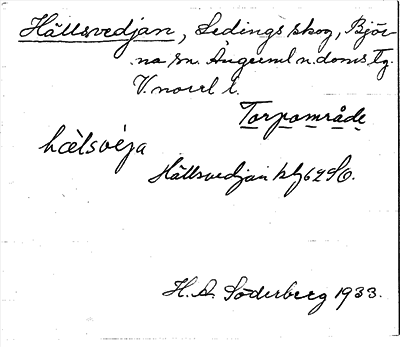 Hällsvedjan, Ledings skog, Björ-
na sn. Ångerml n. doms. tg.
V. norrl l.
Torpområde
hælsvéja
Hällsvedjan kbl 62 SO.
H. A. Söderberg 1933.